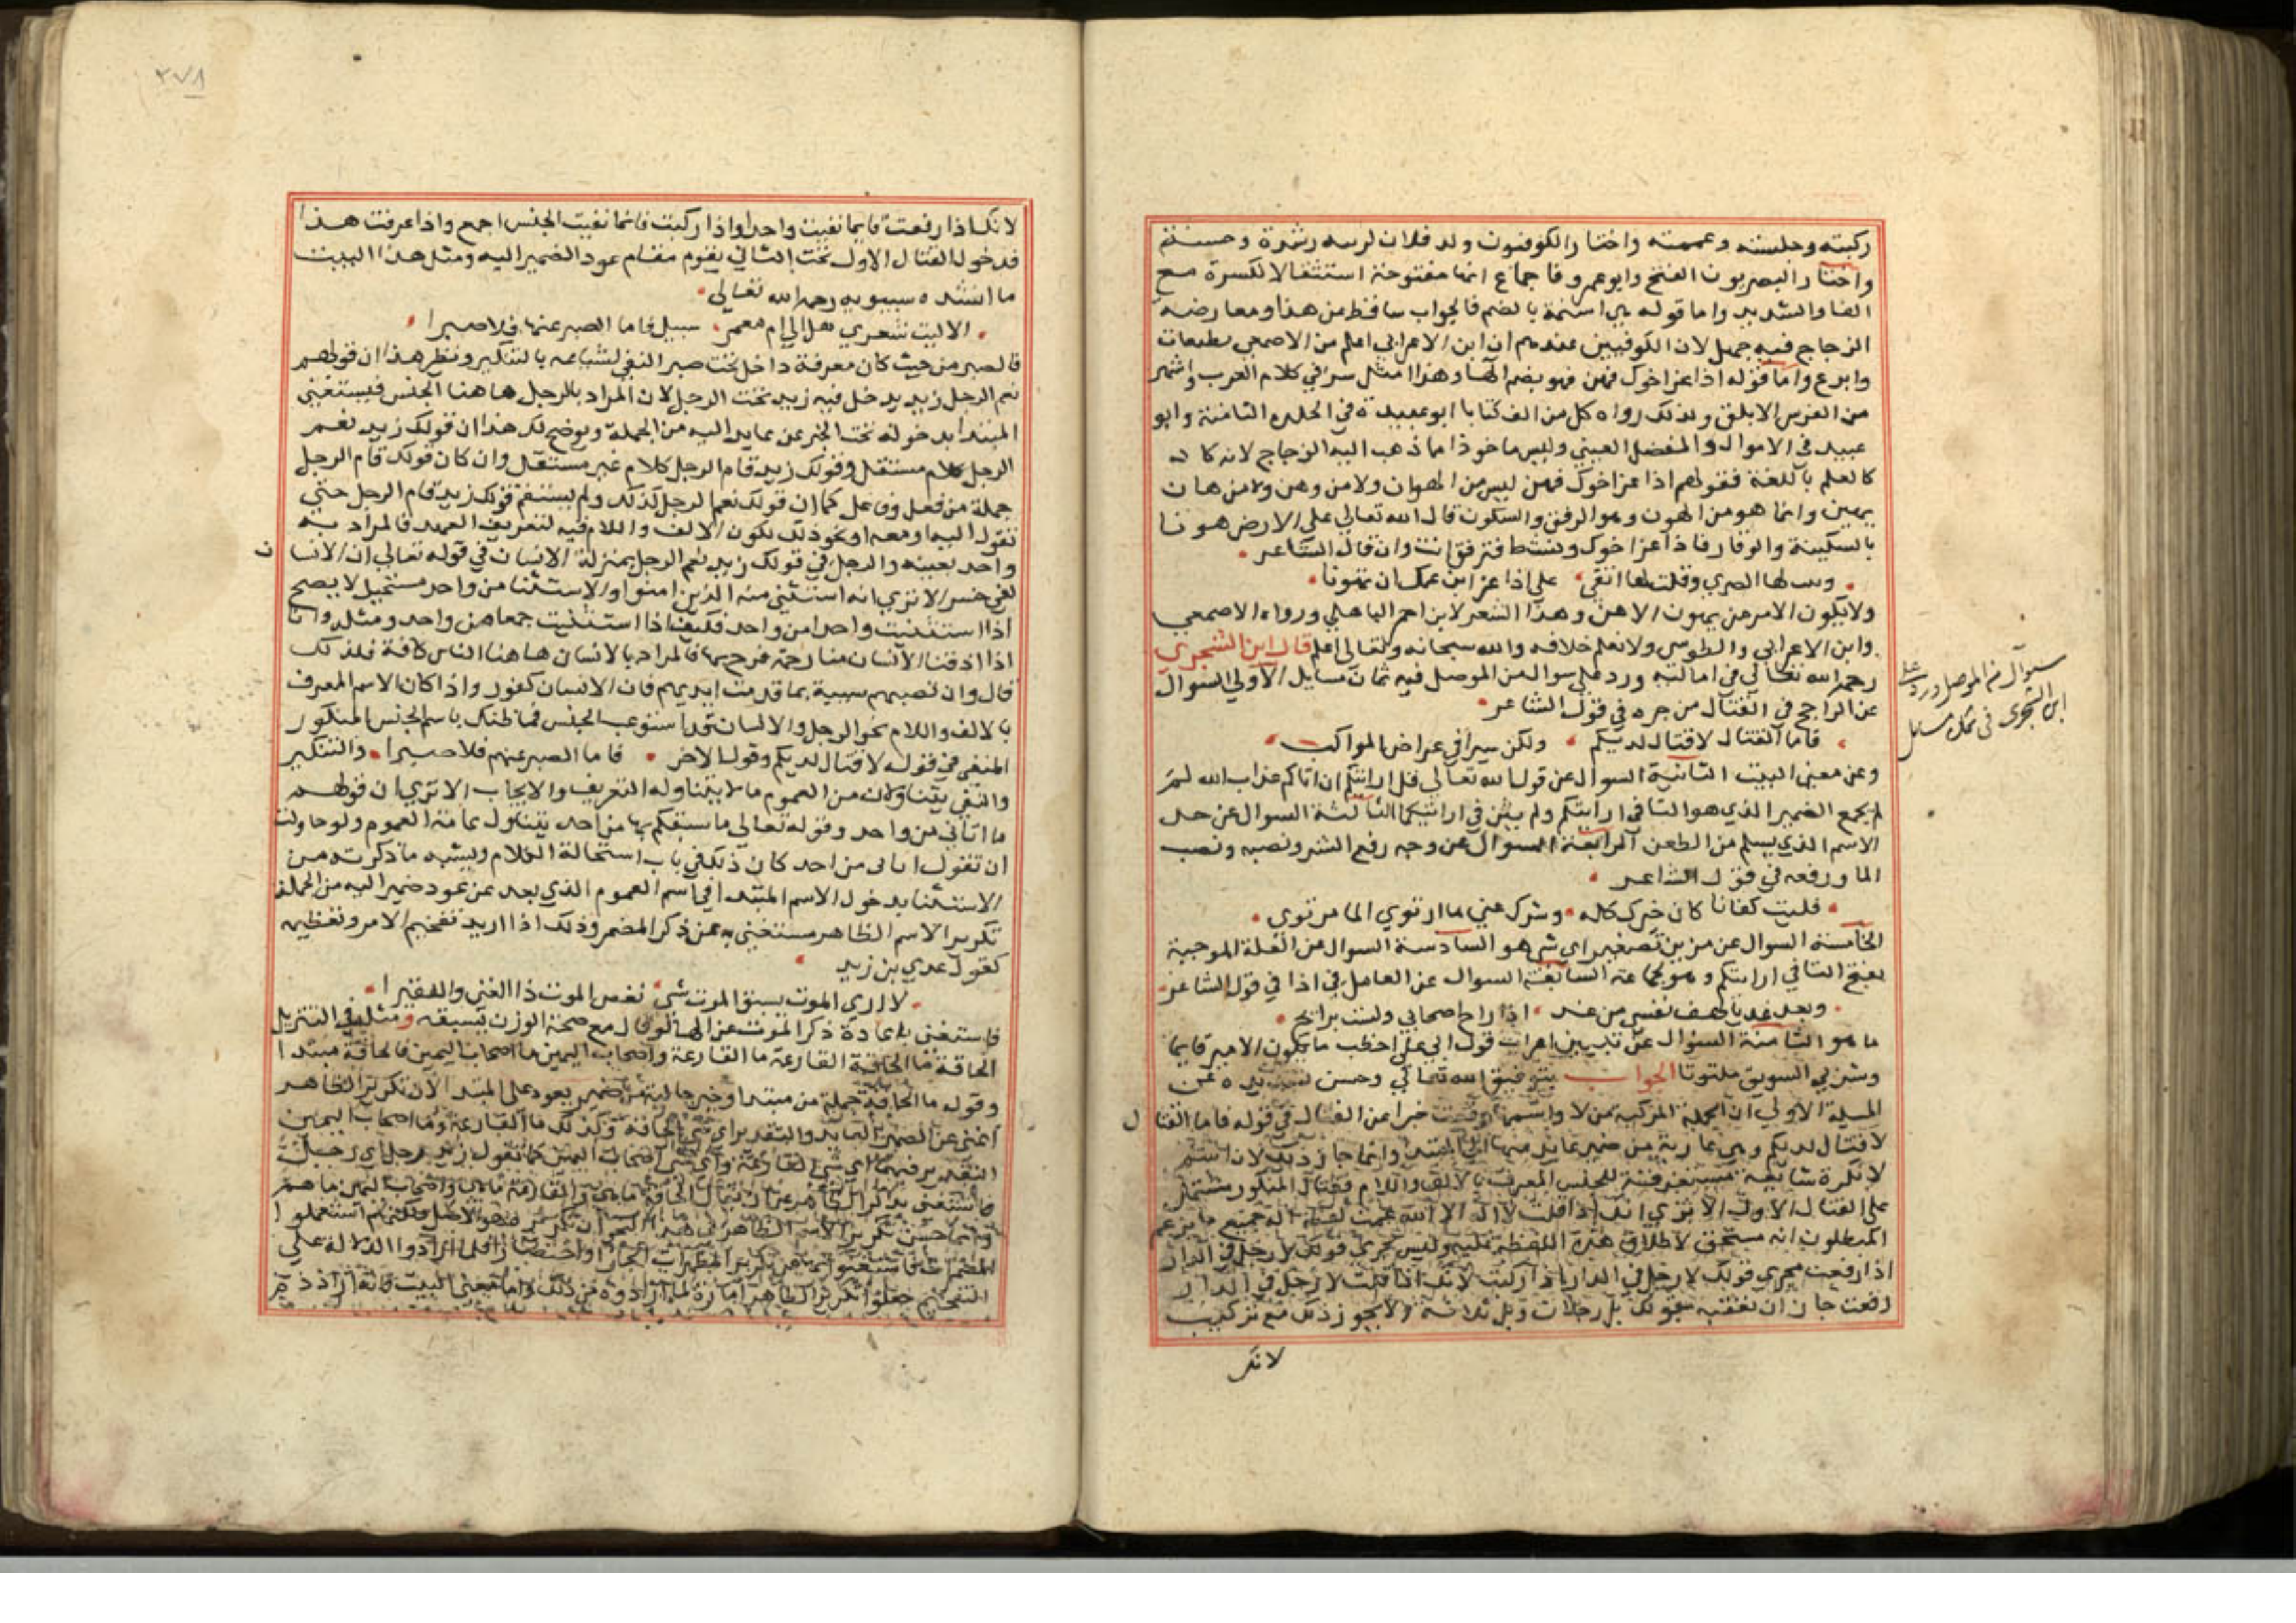 ركبته وجلسته وعممته واختار الكوفيون ولد فلان لرسه رشدة وحسنتم
واختار البصريون الفتح وابو عمرو فاجماع انها مفتوحة استثقالا لكسرة مع
الفا والتشديد واما قوله هي اسنمة بالضم فالجواب ساقط من هذا ومعارضة
الزجاج فيه جهل لان الكوفيين عندهم ان ابن الاعرابي اعلم من الاصمعي بطبعات
وابرع واما قوله اذا عز اخوك فهن فهو بضم الها وهذا امثل سر في كلام العرب واشهر
من الفرس الابلق وبذلك رواه كل من الف كتابا ابو عبيدة في الحلبه الثامنة وابو
عبيد في الاموال والمفضل الضبي وليس ماخوذا مما ذهب اليه الزجاج لانه كان
كالعلم باللغة فقولهم اذا عز اخوك فهن ليس من الهوان ولا من وهن ولا من هان
يهين وانما هو من الهون وهو الرفق والسكون قال الله تعالى على الارض هونا
بالسكينة والوقار فاذا عز اخوك ونشط فترفق انت وان قال الشاعر
وقلت لها اتقي على اذا عز ابن عمك ان تهونا
ولا يكون الامر من يهون الا هن وهذا الشعر لابن احمر الباهلي ورواه الاصمعي
وابن الاعرابي والطوسي ولا نعلم خلافه والله سبحانه وتعالى اعلم قال ابن الشجري
رحمه الله تعالى في اماليه ورد علي سوال من الموصل فيه ثمان مسايل الاولى السوال
عن الراجح في القتال من جره في قول الشاعر
فاما القتال لا قتال لديكم ولكن سيرا في عراض المواكب
وعن معنى البيت الثانية السوال عن قول الله تعالى قل ارايتكم ان اتاكم عذاب الله لم
لم يجمع الضمير الذي هو التا في ارايتكم ولم يثن في ارايتكما الثالثة السوال عن حد
الاسم الذي يسلم من الطعن الرابعة السوال عن وجه رفع الشر ونصبه ونصب
الما ورفعه في قول الشاعر
فليت كفافا كان خيرك كله وشرك عني ما ارتوى الما مرتوي
الخامسة السوال عن مزين تصغير اي شي هو السادسة السوال من العلة الموجبة
بفتح التا في ارايتكم وهو لجماعة السابعة السوال عن العامل في اذا في قول الشاعر
وبعد غد يا لهف نفسي من غد اذا راح اصحابي ولست برائح
ما هو الثامنة السوال عن تبيين اعراب قول ابي علي اخطب ما يكون الامير قايما
وشربي السويق ملتوتا الجواب بتوفيق الله تعالى وحسن تسديده عن
المسيلة الاولى ان الجملة المركبة من لا واسمها وقعت خبرا عن القتال في قوله فاما القتال
لا قتال لديكم وهي عارية من ضمير عايد منها الى المبتدا وانما جاز ذلك لان اسم
لا نكرة شايعة مستغرقة للجنس المعرف بالالف واللام فقتال المنكور مشتمل
على القتال الاول الا ترى انك اذا قلت لا اله الا الله عمت لفظة اله جميع ما يزعم
المبطلون انه مستحق لاطلاق هذه اللفظة عليه وليس يجري قولك لا رجل في الدار
اذا رفعت مجرى قولك لا رجل في الدار اذا ركبت لانك اذا قلت لا رجل في الدار
رفعت جاز ان تعقبه بقولك بل رجلان وبل ثلاثة ولا يجوز ذلك مع تركيب
لانك
سوال من الموصل ورد على
ابن الشجري في ثمان مسايل
٢٧٨
لانك اذا رفعت فانما نفيت واحدا واذا ركبت فانما نفيت الجنس اجمع واذا عرفت هذا
فدخول القتال الاول تحت الثاني يقوم مقام عود الضمير اليه ومثل هذا البيت
ما انشده سيبويه رحمه الله تعالى
الا ليت شعري هل الى ام معمر سبيل فاما الصبر عنها فلا صبرا
فالصبر من حيث كان معرفة داخل تحت صبر النفي لشياعه بالتنكير ونظير هذا ان قولهم
نعم الرجل زيد يدخل فيه زيد تحت الرجل لان المراد بالرجل هاهنا الجنس فيستغنى
المبتدا بدخوله تحت الخبر عن عايد اليه من الجملة ويوضح لك هذا ان قولك زيد نعم
الرجل كلام مستقل وقولك زيد قام الرجل كلام غير مستقل وان كان قولك قام الرجل
جملة من فعل وفاعل كما ان قولك نعم الرجل كذلك ولم يستقم قولك زيد قام الرجل حتى
تقول اليه او معه او نحو ذلك لكون الالف واللام فيه لتعريف العهد فالمراد به
واحد بعينه والرجل في قولك زيد نعم الرجل بمنزلة الانسان في قوله تعالى ان الانسان
لفي خسر الا ترى انه استثنى منه الذين امنوا والاستثنا من واحد مستحيل لا يصح
اذا استثنيت واحدا من واحد فكيف اذا استثنيت جمعا من واحد ومثله وانا
اذا اذقنا الانسان منا رحمة فرح بها فالمراد بالانسان هاهنا الناس كافة فلذلك
قال وان تصبهم سيية بما قدمت ايديهم فان الانسان كفور واذا كان الاسم المعرف
بالالف واللام نحو الرجل والانسان قد استوعب الجنس فما ظنك باسم الجنس المنكور
المنفي في قوله لا قتال لديكم وقول الاخر فاما الصبر عنهم فلا صبرا والتنكير
والنفي يتناولان من العموم ما لا يتناوله التعريف والايجاب الا ترى ان قولهم
ما اتاني من واحد وقوله تعالى ما سبقكم بها من احد يتناول غاية العموم ولو حاولت
ان تقول اتاني من احد كان ذلك في باب استحالة الكلام ويشبه ما ذكرته من
الاستثنا بدخول الاسم المبتدا في اسم العموم الذي بعد عن عود ضمير اليه من الجملة
تكرير الاسم الظاهر مستغنى به عن ذكر المضمر وذلك اذا اريد تفخيم الامر وتعظيمه
كقول عدي بن زيد
لا ارى الموت يسبق الموت شي نغص الموت ذا الغنى والفقيرا
فاستغنى باعادة ذكر الموت عن الها لو قال مع صحة الوزن يسبقه ومثله في التنزيل
الحاقة ما الحاقة القارعة ما القارعة واصحاب اليمين ما اصحاب اليمين فالحاقة مبتدا
وقوله ما الحاقة جملة من مبتدا وخبر خالية من ضمير يعود على المبتدا لان تكرير الظاهر
اغنى عن الضمير العايد والتقدير اي شي الحاقة وكذلك ما القارعة وما اصحاب اليمين
التقدير فيهما اي شي القارعة واي شي اصحاب اليمين كما تقول زيد رجل اي رجل
فاستغنى بتكرير الظاهر عن ان يقال الحاقة ما هي والقارعة ما هي واصحاب اليمين ما هم
وانما حسن تكرير الاسم الظاهر في هذا النحو ان تكريره هو الاصل ولكنهم استعملوا
المضمرات فاستغنوا بها عن تكرير المظهرات ايجازا واختصارا فلما ارادوا الدلالة على
التفخيم جعلوا تكرير الظاهر امارة لما ارادوه من ذلك واما معنى البيت فانه اراد ذم